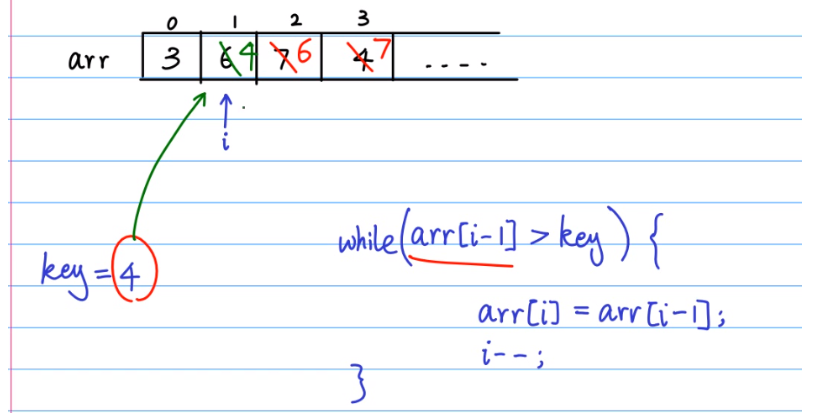 0 1 2 3
arr 3 6 4 7 6 4 7 ....
i
key = 4
while(arr[i-1] > key) {
arr[i] = arr[i-1];
i--;
}